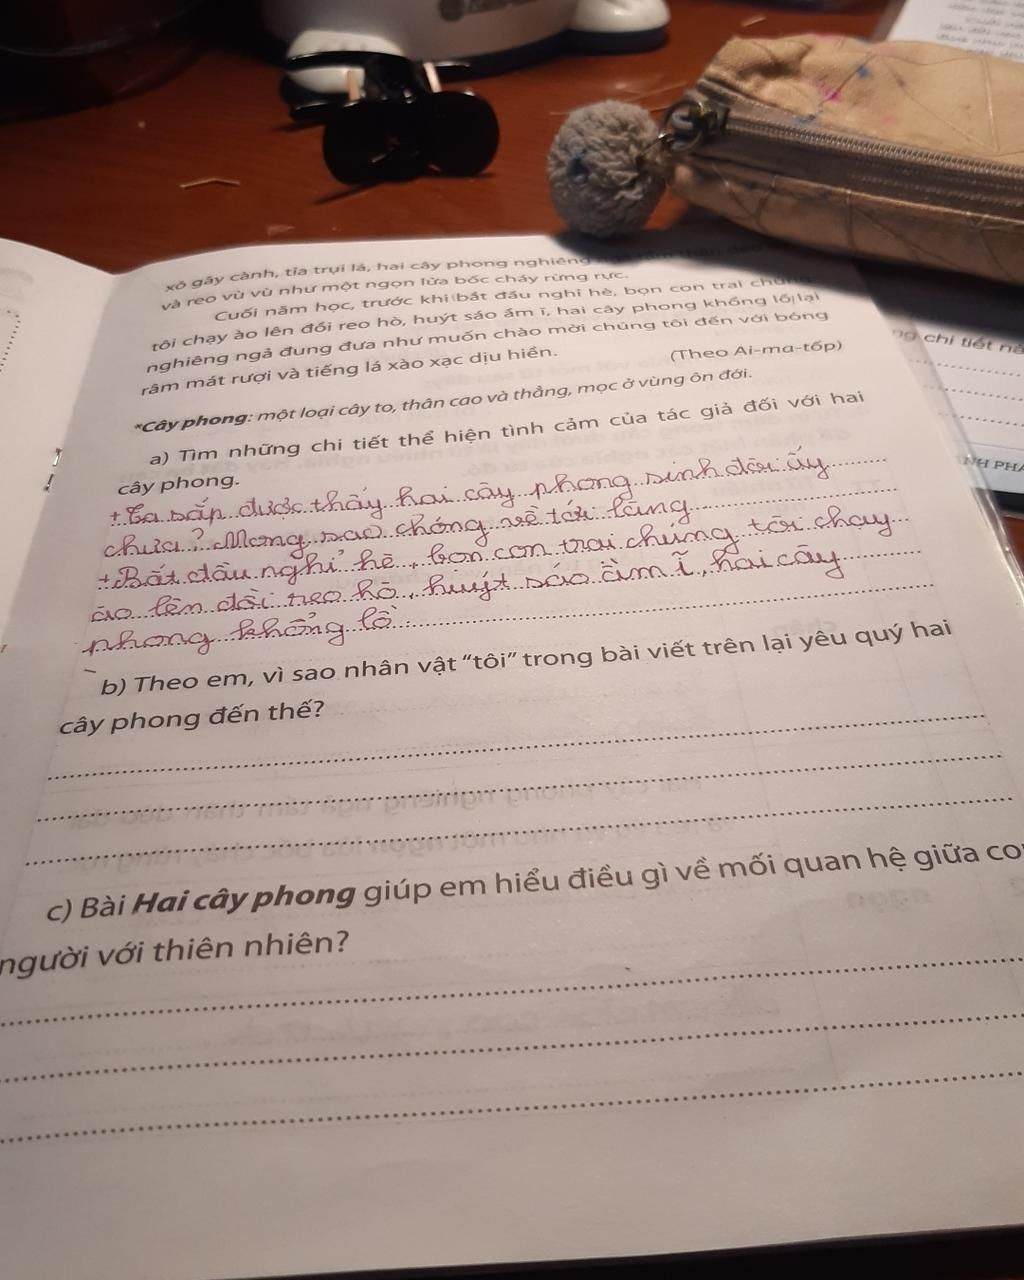 xô gãy cành, tỉa trụi lá, hai cây phong nghiêng
và reo vù vù như một ngọn lửa bốc cháy rừng rực.
Cuối năm học, trước khi bắt đầu nghỉ hè, bọn con trai chúng
tôi chạy ào lên đồi reo hò, huýt sáo ầm ĩ, hai cây phong khổng lồ lại
nghiêng ngả đung đưa như muốn chào mời chúng tôi đến với bóng
râm mát rượi và tiếng lá xào xạc dịu hiền.
(Theo Ai-ma-tốp)
*Cây phong: một loại cây to, thân cao và thẳng, mọc ở vùng ôn đới.
a) Tìm những chi tiết thể hiện tình cảm của tác giả đối với hai
cây phong.
+ Ta sắp được thấy hai cây phong sinh đôi ấy
chưa? Mong sao chóng về tới làng
+ Bắt đầu nghỉ hè, bọn con trai chúng tôi chạy
ào lên đồi reo hò, huýt sáo ầm ĩ, hai cây
phong khổng lồ.
b) Theo em, vì sao nhân vật “tôi” trong bài viết trên lại yêu quý hai
cây phong đến thế?
c) Bài Hai cây phong giúp em hiểu điều gì về mối quan hệ giữa co
người với thiên nhiên?
chi tiết